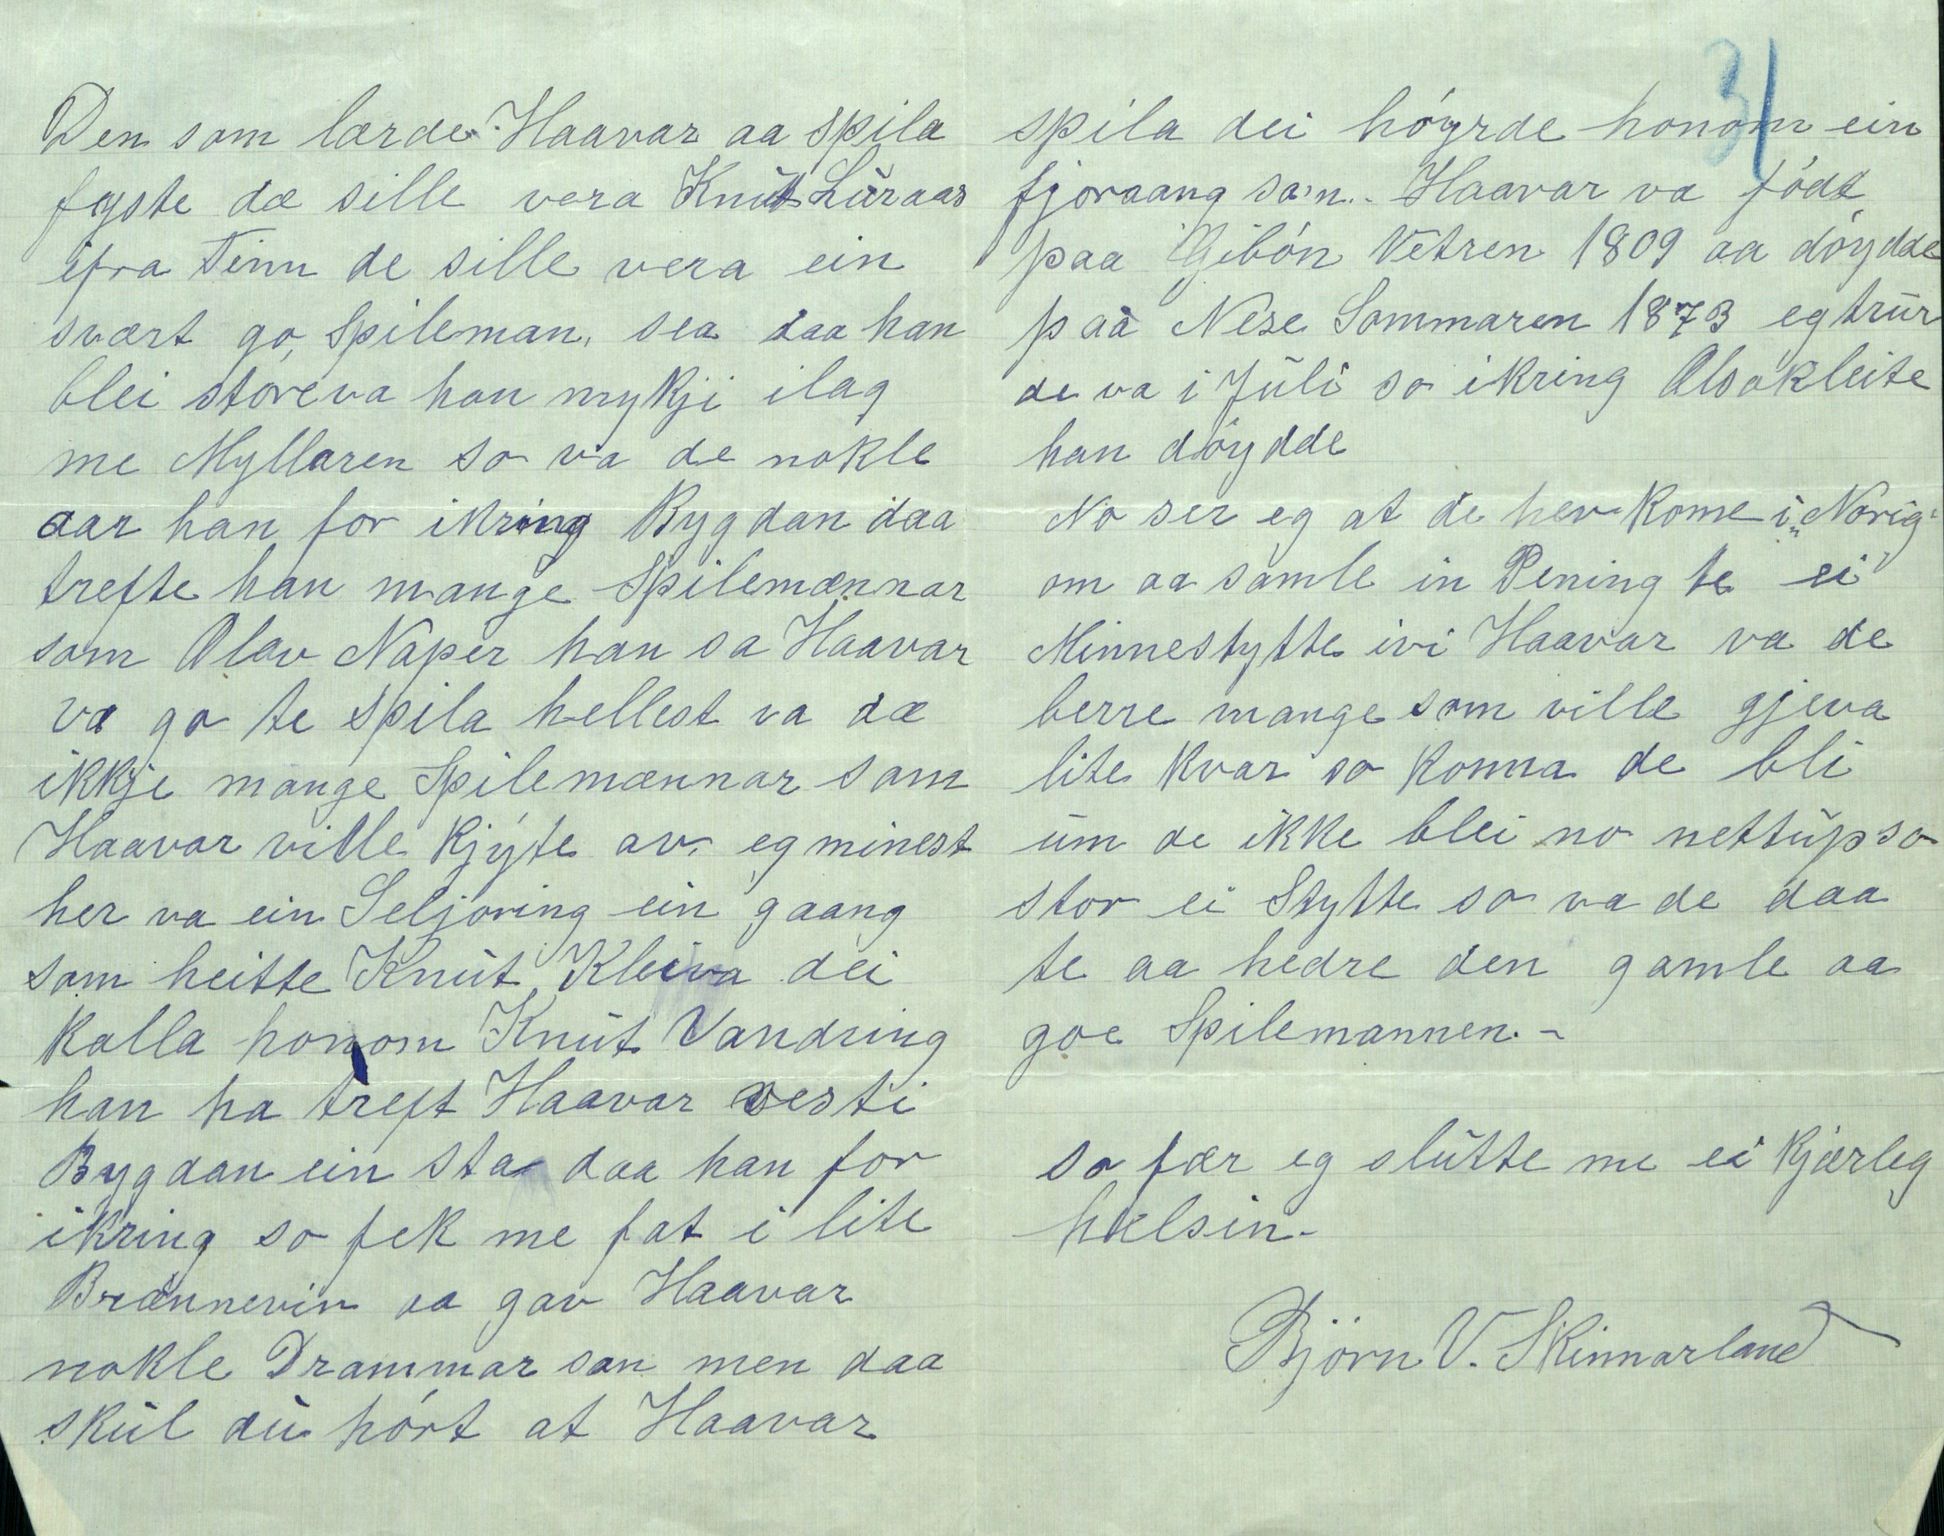 Den som lærde Haavar aa spila
fyste dæ sille vera Knut Luraas
ifra Tinn de sille vera ein
svært go, Spileman, sea daa han
blei store va han mykji ilag
me Myllaren so va de nokle
aar han for ikring Bygdan daa
trefte han mange Spilemænnar
som Olav Naper han sa Haavar
va go te spila hellest va dæ
ikkje mange Spilemænnar som
Haavar ville Kjýte av. eg minest
her va ein Seljoring ein gaang
som heitte Knut Kleiva dei
Kalla honom Knut Vandring
han ha treft Haavar vesti
Bygdan ein sta daa han for
ikring so fek me fat i lite
Brænnevin aa gav Haavar
nokle Drammar san men daa
skul du hórt at Haavar
31
spila dei hóyrde honom ein
fjoraang san.. Haavar va fódt
paa Gibón Vetren 1809 aa dóydde
paa Nese Sommaren 1873 eg trur
de va i Juli so ikring Olsokleite
han dóydde
No ser eg at de hev Kome i „Norig"
om aa samle in Pening te ei
Minnestytte ivi Haavar va de
berre mange som ville gjeva
lite Kvar so Konna de bli
um de ikke blei no nettup so
stor ei Stytte so va de daa
te aa hedre den gamle aa
goe Spilemannen. -
so fær eg slutte me ei Kjærleg
hælsin.
Bjørn V. Skinnarland